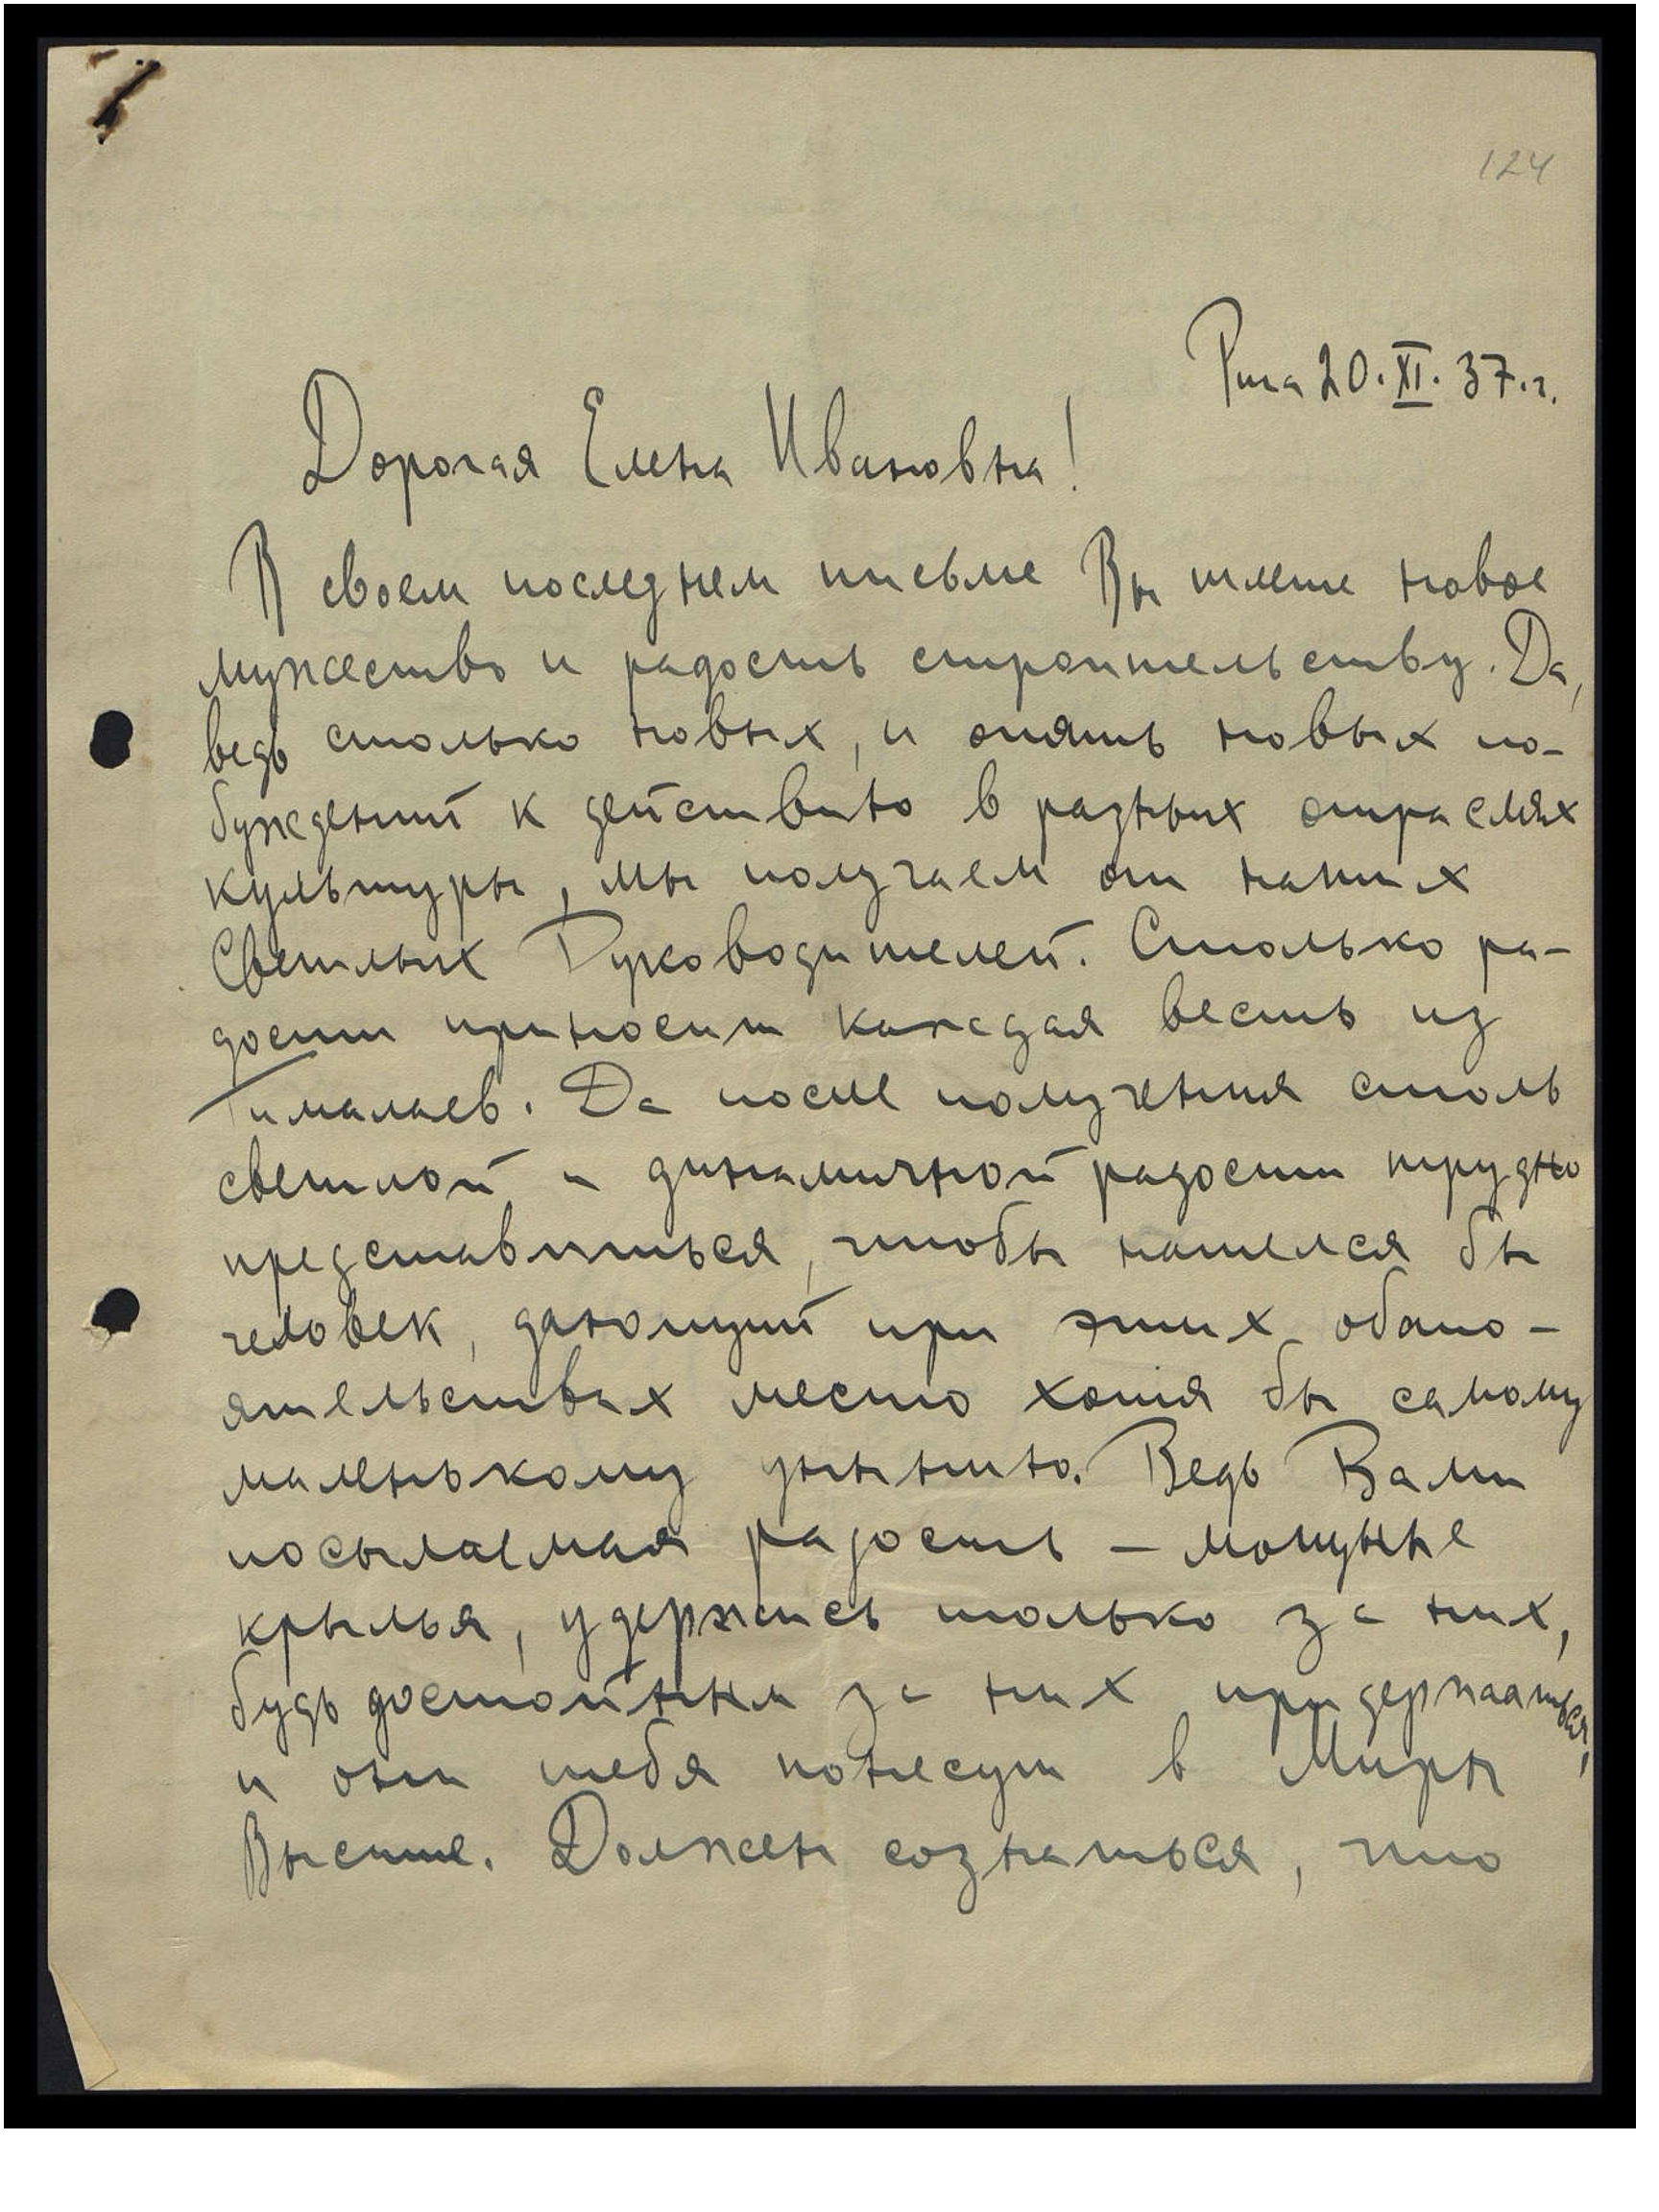 124
Рига 20.XI.37.г.
Дорогая Елена Ивановна!
В своем последнем письме Вы шлете новое
мужество и радость строительству. Да,
ведь столько новых, и опять новых по-
буждений к действию в разных отраслях
культуры, мы получаем от наших
Светлых Руководителей. Столько ра-
дости приносит каждая весть из
Гималаев. Да после получения столь
светлой и динамичной радости трудно
представиться, чтобы нашелся бы
человек, дающий при этих обсто-
ятельствах место хотя бы самому
маленькому унынию. Ведь Вами
посылаемая радость – мощные
крылья, удержись только за них,
будь достойным за них придержаться,
и они тебя понесут в Миры
Высшие. Должен сознаться, что